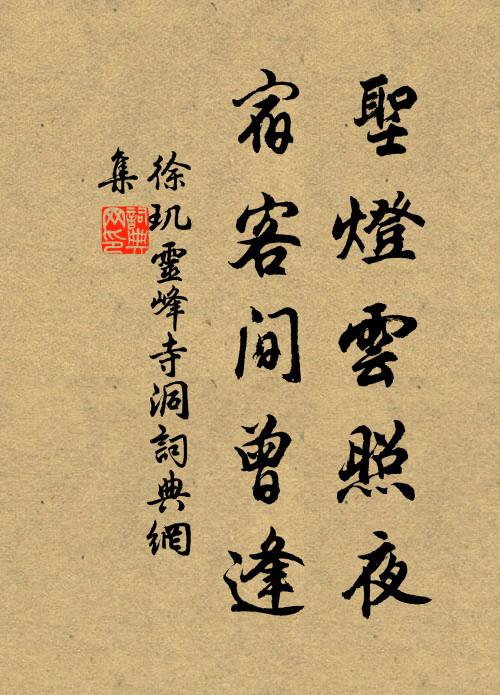 聖燈雲照夜
宿客間曾逢
徐玑靈峰寺洞詞典網
集
詞典網印